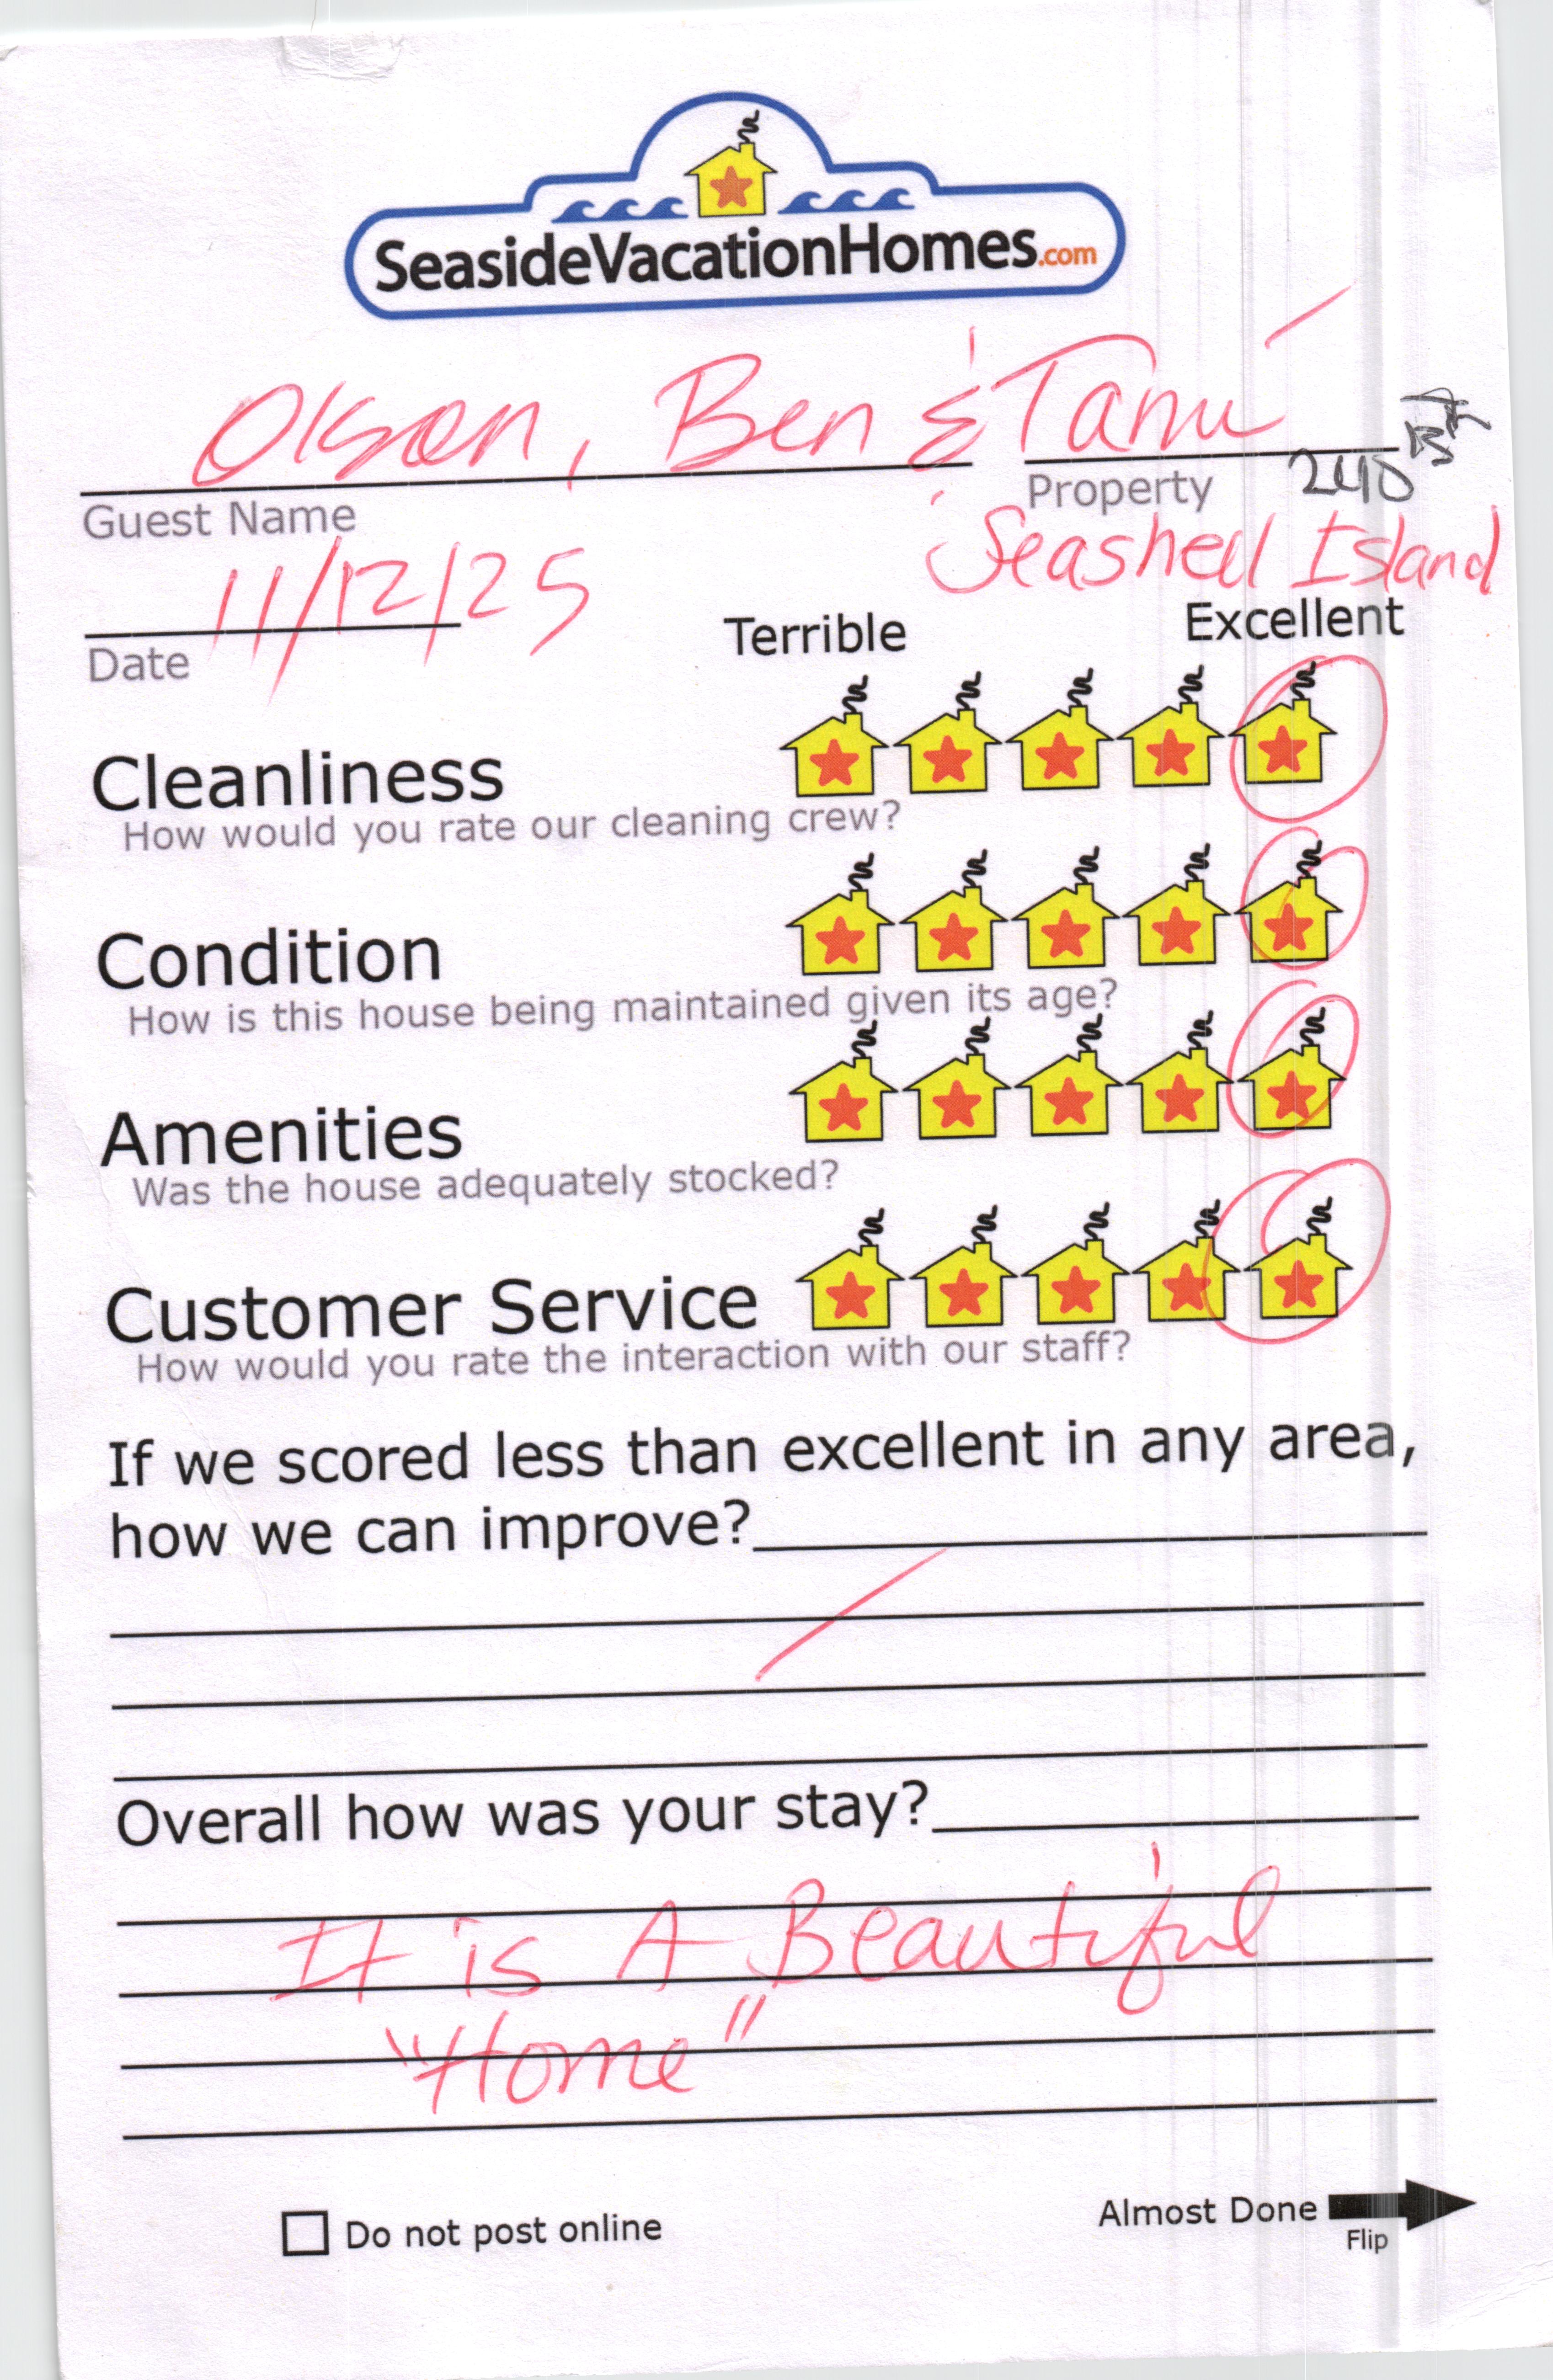 SeasideVacationHomes.com
Olson, Ben & Tami
Guest Name
Property
240 13th
Seashell Island
11/12/25
Date
Terrible
Excellent
Cleanliness
How would you rate our cleaning crew?
Condition
How is this house being maintained given its age?
Amenities
Was the house adequately stocked?
Customer Service
How would you rate the interaction with our staff?
If we scored less than excellent in any area,
how we can improve?
Overall how was your stay?
It is A Beautiful
"Home"
Do not post online
Almost Done
Flip